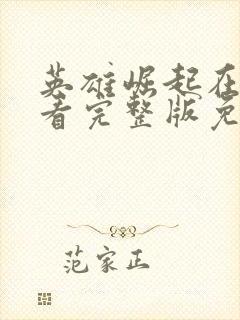 英雄崛起在
看完整版免
范家正